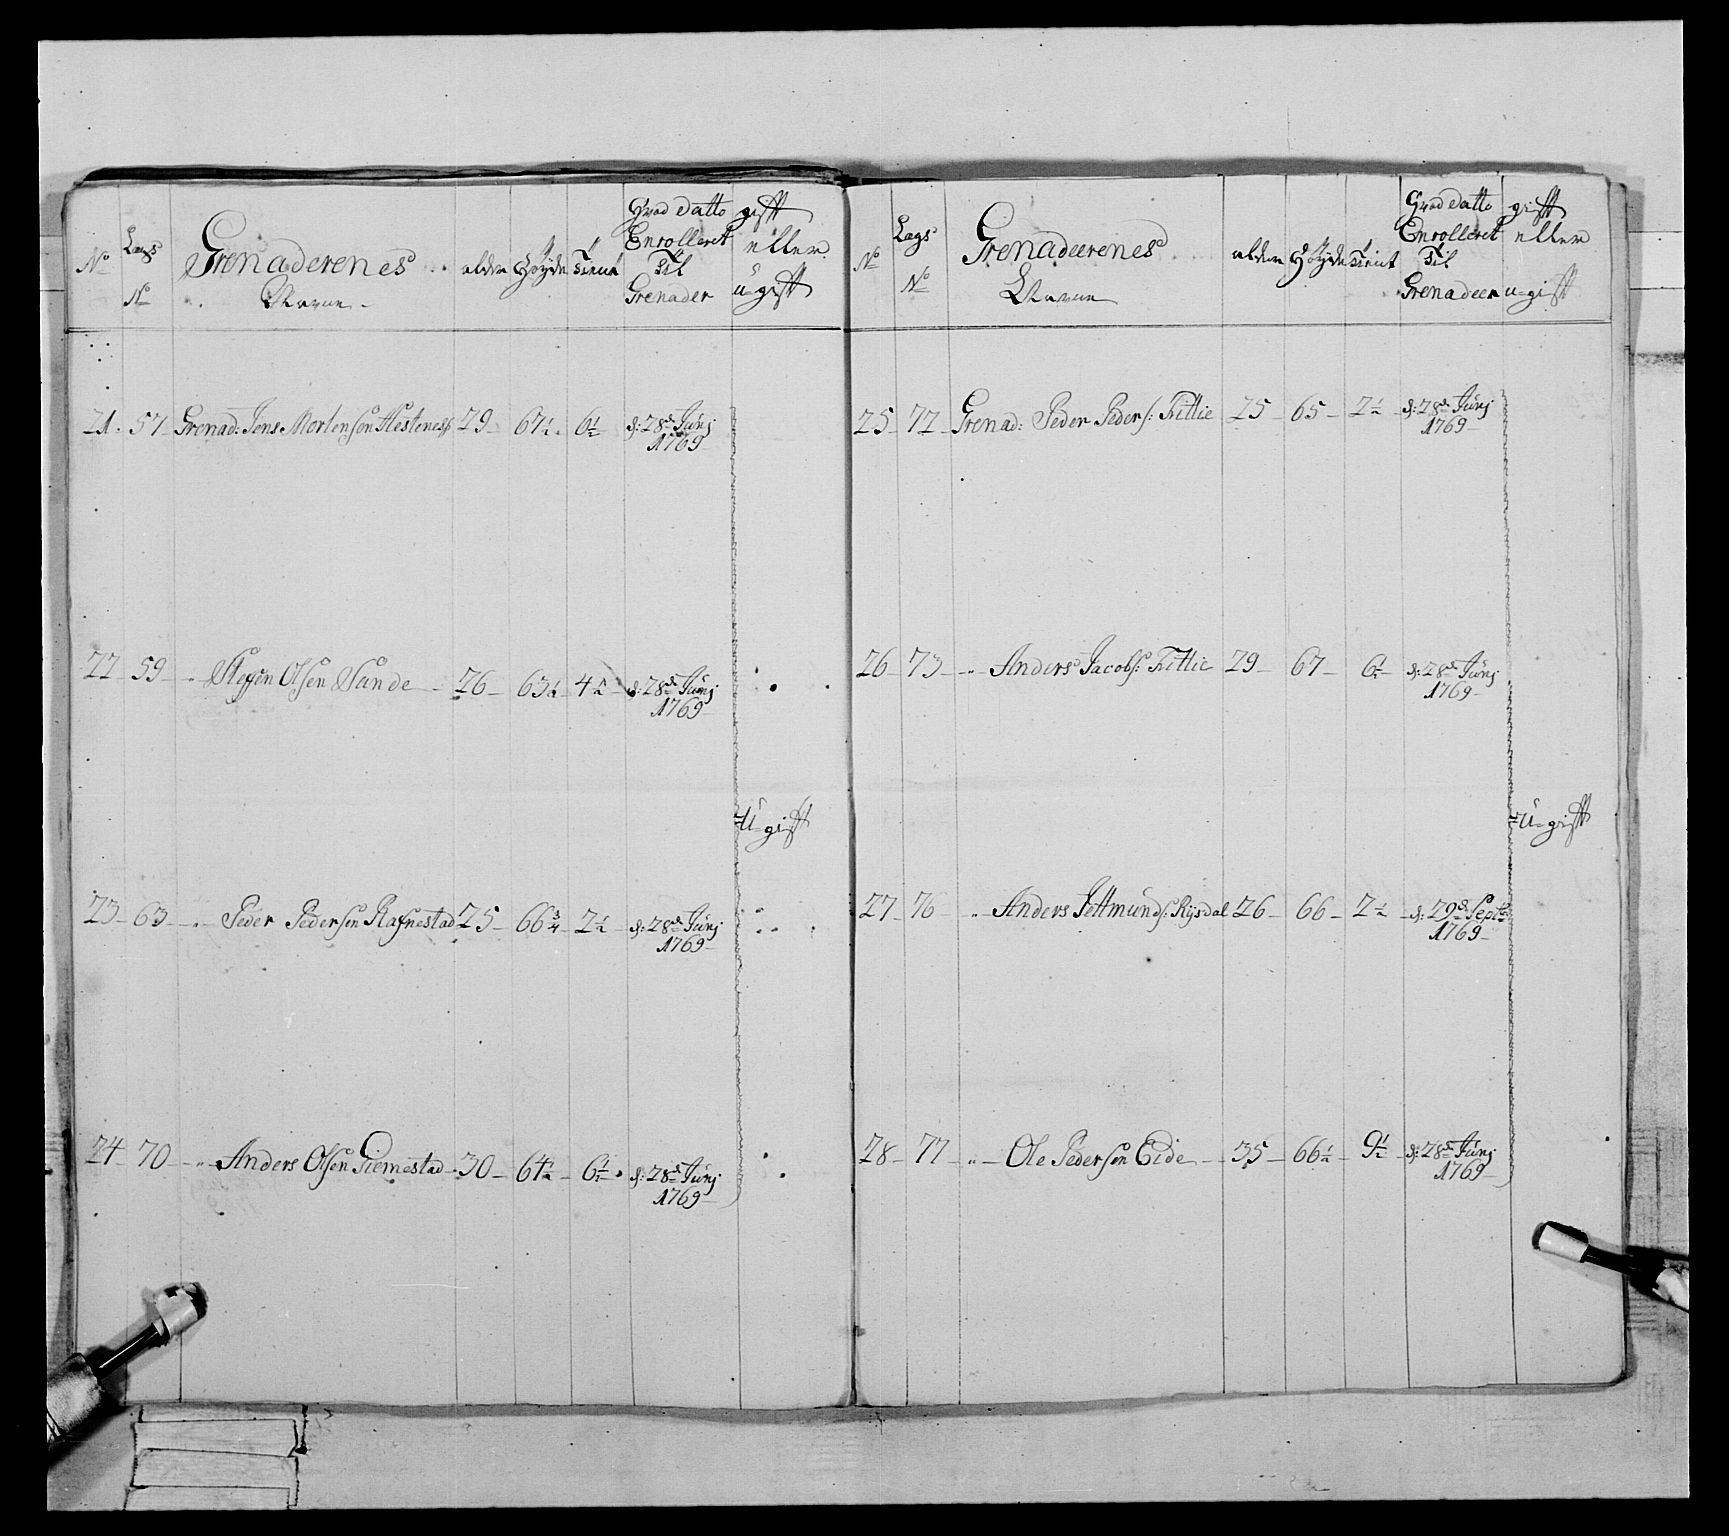 No
Lægs No
Grenaderenes Navne
alder
Høyde
Tient
Hvad datto Enrolleret Til Grenader
gift eller u-gift
21. 57 Grenad: Jens Mortensøn Hestenes 29 67½ 6½ d: 28de Junj 1769
22 59 Olsen Sande 26 65½ 4½ d: 28de Junj 1769
U-gift
23 63 Peder Pedersøn Rafnestad 25 66¾ 2½ d: 28de Junj 1769
24 70 Anders Olsen Giemestad 30 64½ 6½ d: 28de Junj 1769
No
Lægs No
Grenadeerenes Navne
alder
Høyde
Tient
Hvad datto Enrolleret Til Grenadeer
gift eller u-gift
25 72 Grenad: Peder Peders: 25 65 2½ d: 28de Junj 1769
26 73 Anders Jacobs: 29 67 6½ d: 28de Junj 1769
U-gift
27 76 Anders Rysdal 26 66 2½ d: 29de Septr 1769
28 77 Ole Pedersøn Eide 35 66½ 9½ d: 28de Junj 1769